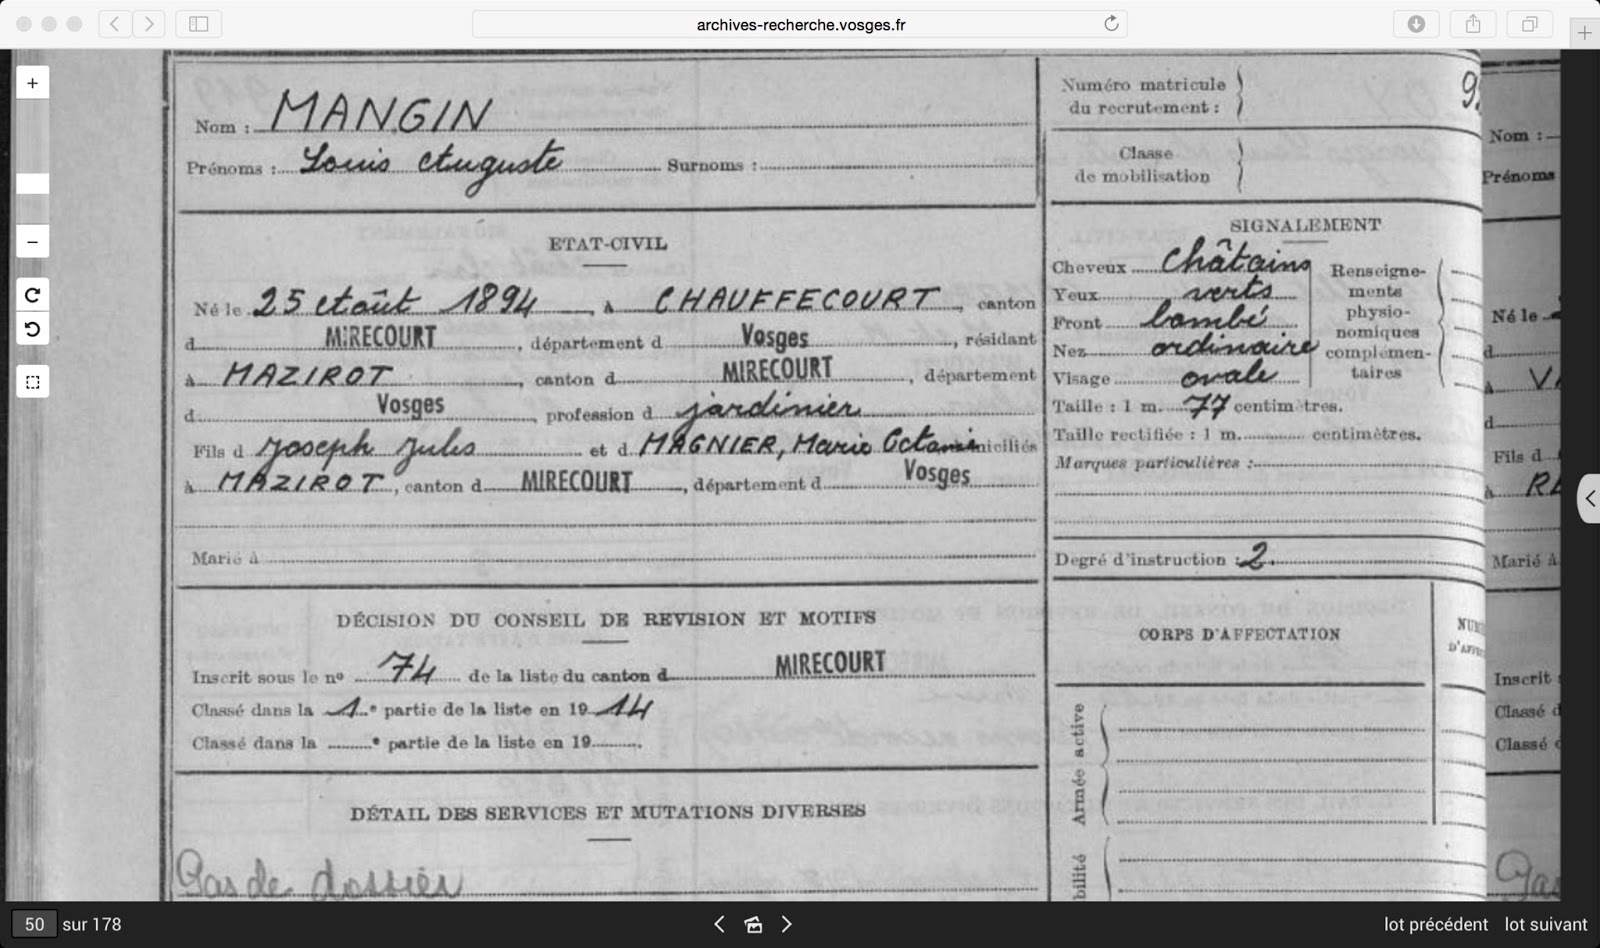 archives-recherche.vosges.fr
Nom : MANGIN
Prénoms : Louis Auguste Surnoms :
ETAT-CIVIL
Né le 25 Août 1894, à CHAUFFECOURT, canton
d MIRECOURT, département d Vosges, résidant
à MAZIROT, canton d MIRECOURT, département
d Vosges, profession d jardinier
Fils d Joseph Jules et d MAGNIER, Marie Octanie domiciliés
à MAZIROT, canton d MIRECOURT, département d Vosges
Marié à
DÉCISION DU CONSEIL DE REVISION ET MOTIFS
Inscrit sous le nº 74 de la liste du canton d MIRECOURT
Classé dans la 1e partie de la liste en 1914
Classé dans la e partie de la liste en 19 .
DÉTAIL DES SERVICES ET MUTATIONS DIVERSES
Pas de dossier
Numéro matricule
du recrutement :
Classe
de mobilisation
SIGNALEMENT
Cheveux châtains
Yeux verts
Front bombé
Nez ordinaire
Visage ovale
Renseigne-
ments
physio-
nomiques
complémen-
taires
Taille : 1 m. 77 centimètres.
Taille rectifiée : 1 m. centimètres.
Marques particulières :
Degré d'instruction : 2
CORPS D'AFFECTATION
Armée active
bilité
Nom :
Prénoms
Né le
d
à
d
Fils d
à
Marié à
Inscrit
Classé d
Classé d
50 sur 178
lot précédent lot suivant